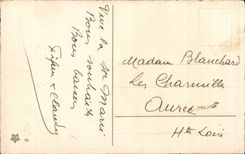 Vive la Ste Marie
Bons souhaits
Bons baisers
& Claude
Madame Blanchard
Les Charmilles
Aurec
Hte Loire